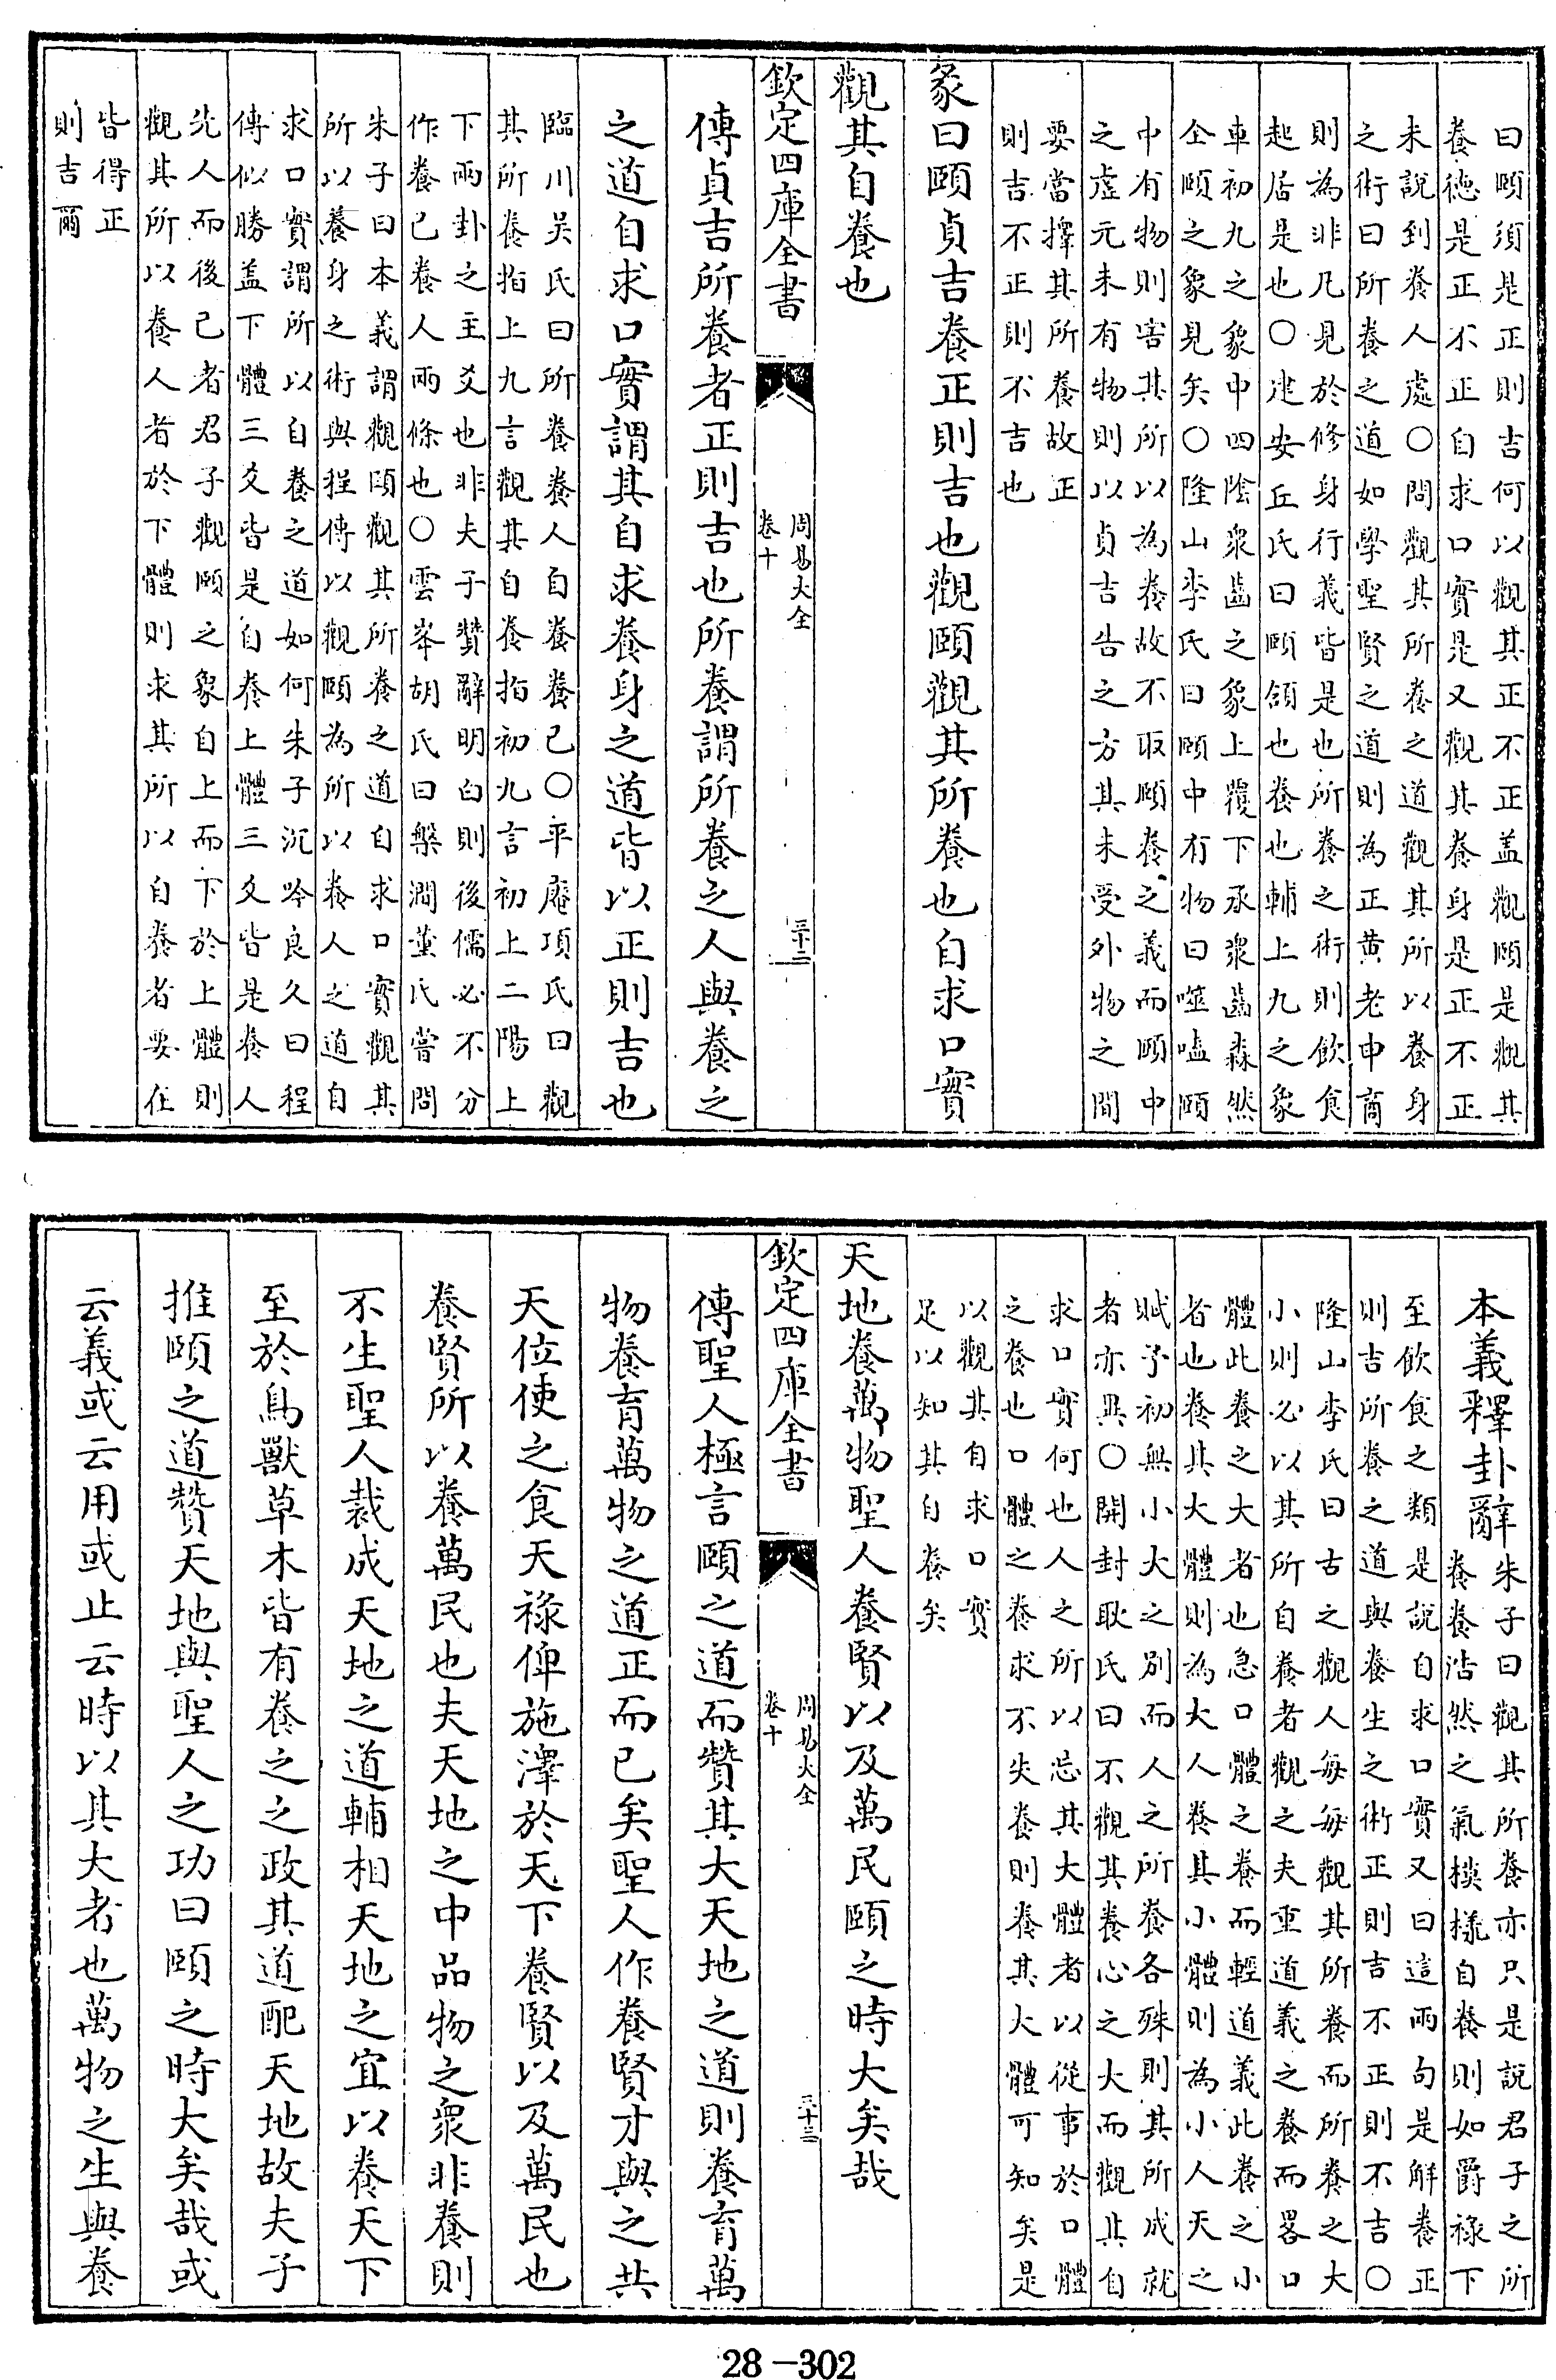 曰頤須是正則吉何以觀其正不正盖觀頤是觀其
養徳是正不正自求口實是又觀其養身是正不正
未說到養人處○問觀其所養之道觀其所以養身
之術曰所養之道如學聖賢之道則為正黄老申商
則為非凡見於修身行義皆是也所養之術則飲食
起居是也○建安丘氏曰頤頷也養也輔上九之象
車初九之象中四陰衆齒之象上覆下承衆齒森然
全頤之象見矣○隆山李氏曰頤中有物曰噬嗑頤
中有物則害其所以為養故不取頤養之義而頤中
之虛元未有物則以貞吉告之方其未受外物之間
要當擇其所養故正
則吉不正則不吉也
彖曰頤貞吉養正則吉也觀頤觀其所養也自求口實
觀其自養也
欽定四庫全書
周易大全
卷十
三十二
傳貞吉所養者正則吉也所養謂所養之人與養之
之道自求口實謂其自求養身之道皆以正則吉也
臨川吴氏曰所養養人自養養己○平庵項氏曰觀
其所養指上九言觀其自養指初九言初上二陽上
下兩卦之主爻也非夫子贊辭明白則後儒必不分
作養己養人兩條也○雲峯胡氏曰槃澗董氏嘗問
朱子曰本義謂觀頤觀其所養之道自求口實觀其
所以養身之術與程傳以觀頤為所以養人之道自
求口實謂所以自養之道如何朱子沉吟良久曰程
傳似勝盖下體三爻皆是自養上體三爻皆是養人
先人而後己者君子觀頤之象自上而下於上體則
觀其所以養人者於下體則求其所以自養者要在
皆得正
則吉爾
本義釋卦辭
朱子曰觀其所養亦只是說君子之所
養養浩然之氣模様自養則如爵祿下
至飲食之類是說自求口實又曰這兩句是解養正
則吉所養之道與養生之術正則吉不正則不吉○
隆山李氏曰古之觀人每每觀其所養而所養之大
小則必以其所自養者觀之夫重道義之養而畧口
體此養之大者也急口體之養而輕道義此養之小
者也養其大體則為大人養其小體則為小人天之
賦予初無小大之別而人之所養各殊則其所成就
者亦異○開封耿氏曰不觀其養心之大而觀其自
求口實何也人之所以忘其大體者以從事於口體
之養也口體之養求不失養則養其大體可知矣是
以觀其自求口實
足以知其自養矣
天地養萬物聖人養賢以及萬民頤之時大矣哉
欽定四庫全書
周易大全
卷十
三十三
傳聖人極言頤之道而贊其大天地之道則養育萬
物養育萬物之道正而已矣聖人作養賢才與之共
天位使之食天祿俾施澤於天下養賢以及萬民也
養賢所以養萬民也夫天地之中品物之衆非養則
不生聖人裁成天地之道輔相天地之宜以養天下
至於鳥獸草木皆有養之之政其道配天地故夫子
推頤之道贊天地與聖人之功曰頤之時大矣哉或
云義或云用或止云時以其大者也萬物之生與養
28-302